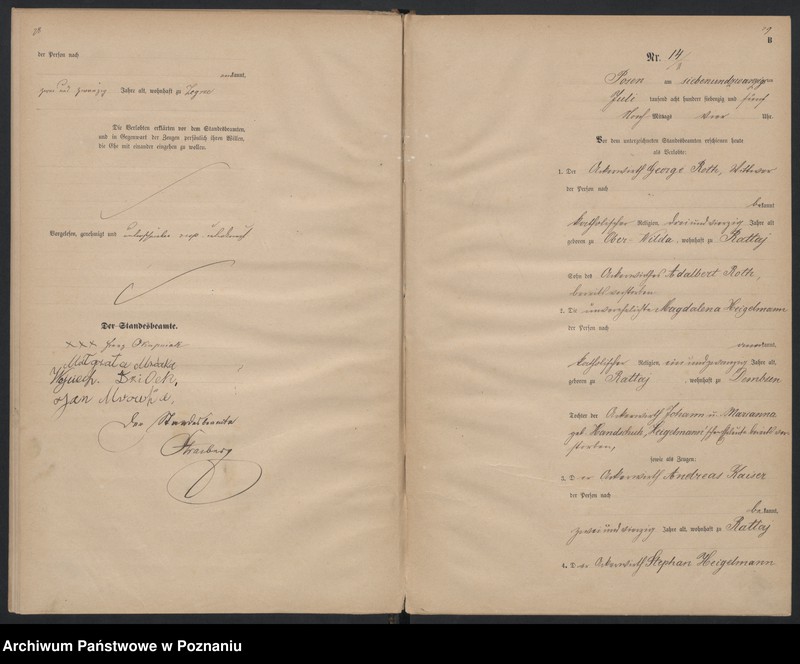 der Person nach
kannt,
zwei und zwanzig Jahre alt, wohnhaft zu
Die Verlobten erklärten vor dem Standesbeamten,
und in Gegenwart der Zeugen persönlich ihren Willen,
die Ehe mit einander eingehen zu wollen.
Vorgelesen, genehmigt und
Der Standesbeamte.
XXX
Jan
Der Standesbeamte
19
8
Nr. 14
Posen am siebenundzwanzigsten
Juli tausend acht hundert siebenzig und fünf
Nach Mittags vier Uhr.
Vor dem unterzeichneten Standesbeamten erschienen heute
als Verlobte:
1. Der Ackerwirth George Roth, Wittwer
der Person nach
bekannt
katholischer Religion, drei und vierzig Jahre alt
geboren zu Ober-Wilda, wohnhaft zu Rattaj
Sohn des Ackerwirthes Adalbert Roth,
bereits verstorben
2. Die unverehelichte Magdalena Heigelmann
der Person nach
kannt,
katholischer Religion, ein und zwanzig Jahre alt,
geboren zu Rattaj, wohnhaft zu Dembsen
Tochter der Ackerwirth Johann u. Marianna
geb. Handschuh, Heigelmann'schen Eheleute bereits ver-
storben,
sowie als Zeugen:
3. Der Ackerwirth Andreas Kaiser
der Person nach
bekannt,
zwei und vierzig Jahre alt, wohnhaft zu Rattaj
4. Der Ackerwirth Stephan Heigelmann
Archiwum Państwowe w Poznaniu